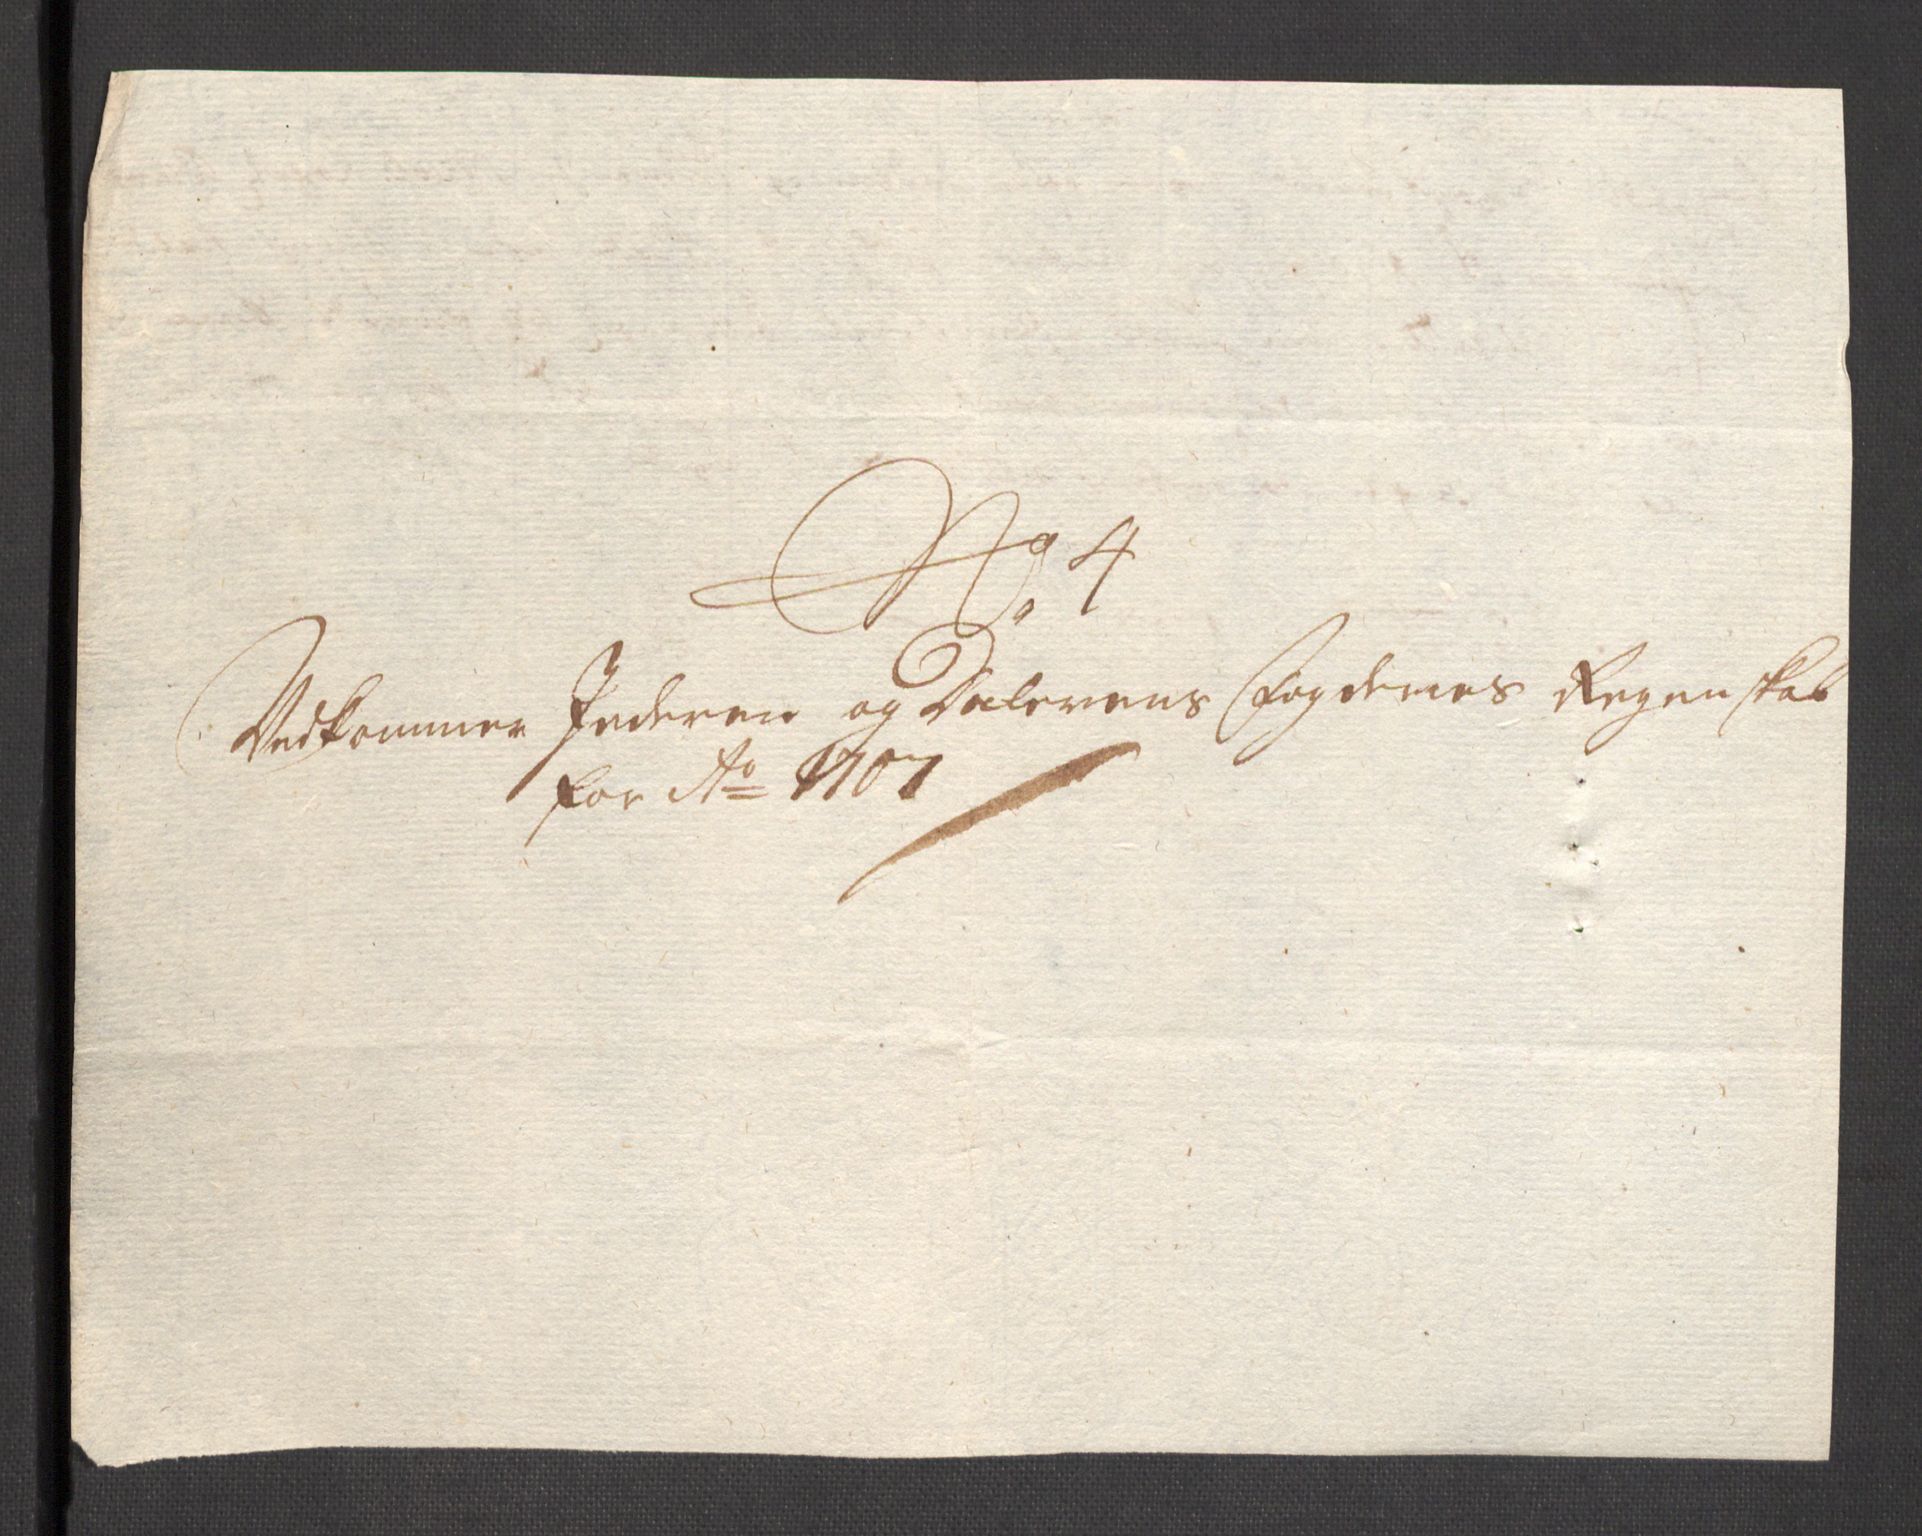 No. 4
Vedkommer Jederen og Dalernes Fogderies Regenskab
for Ao 1707